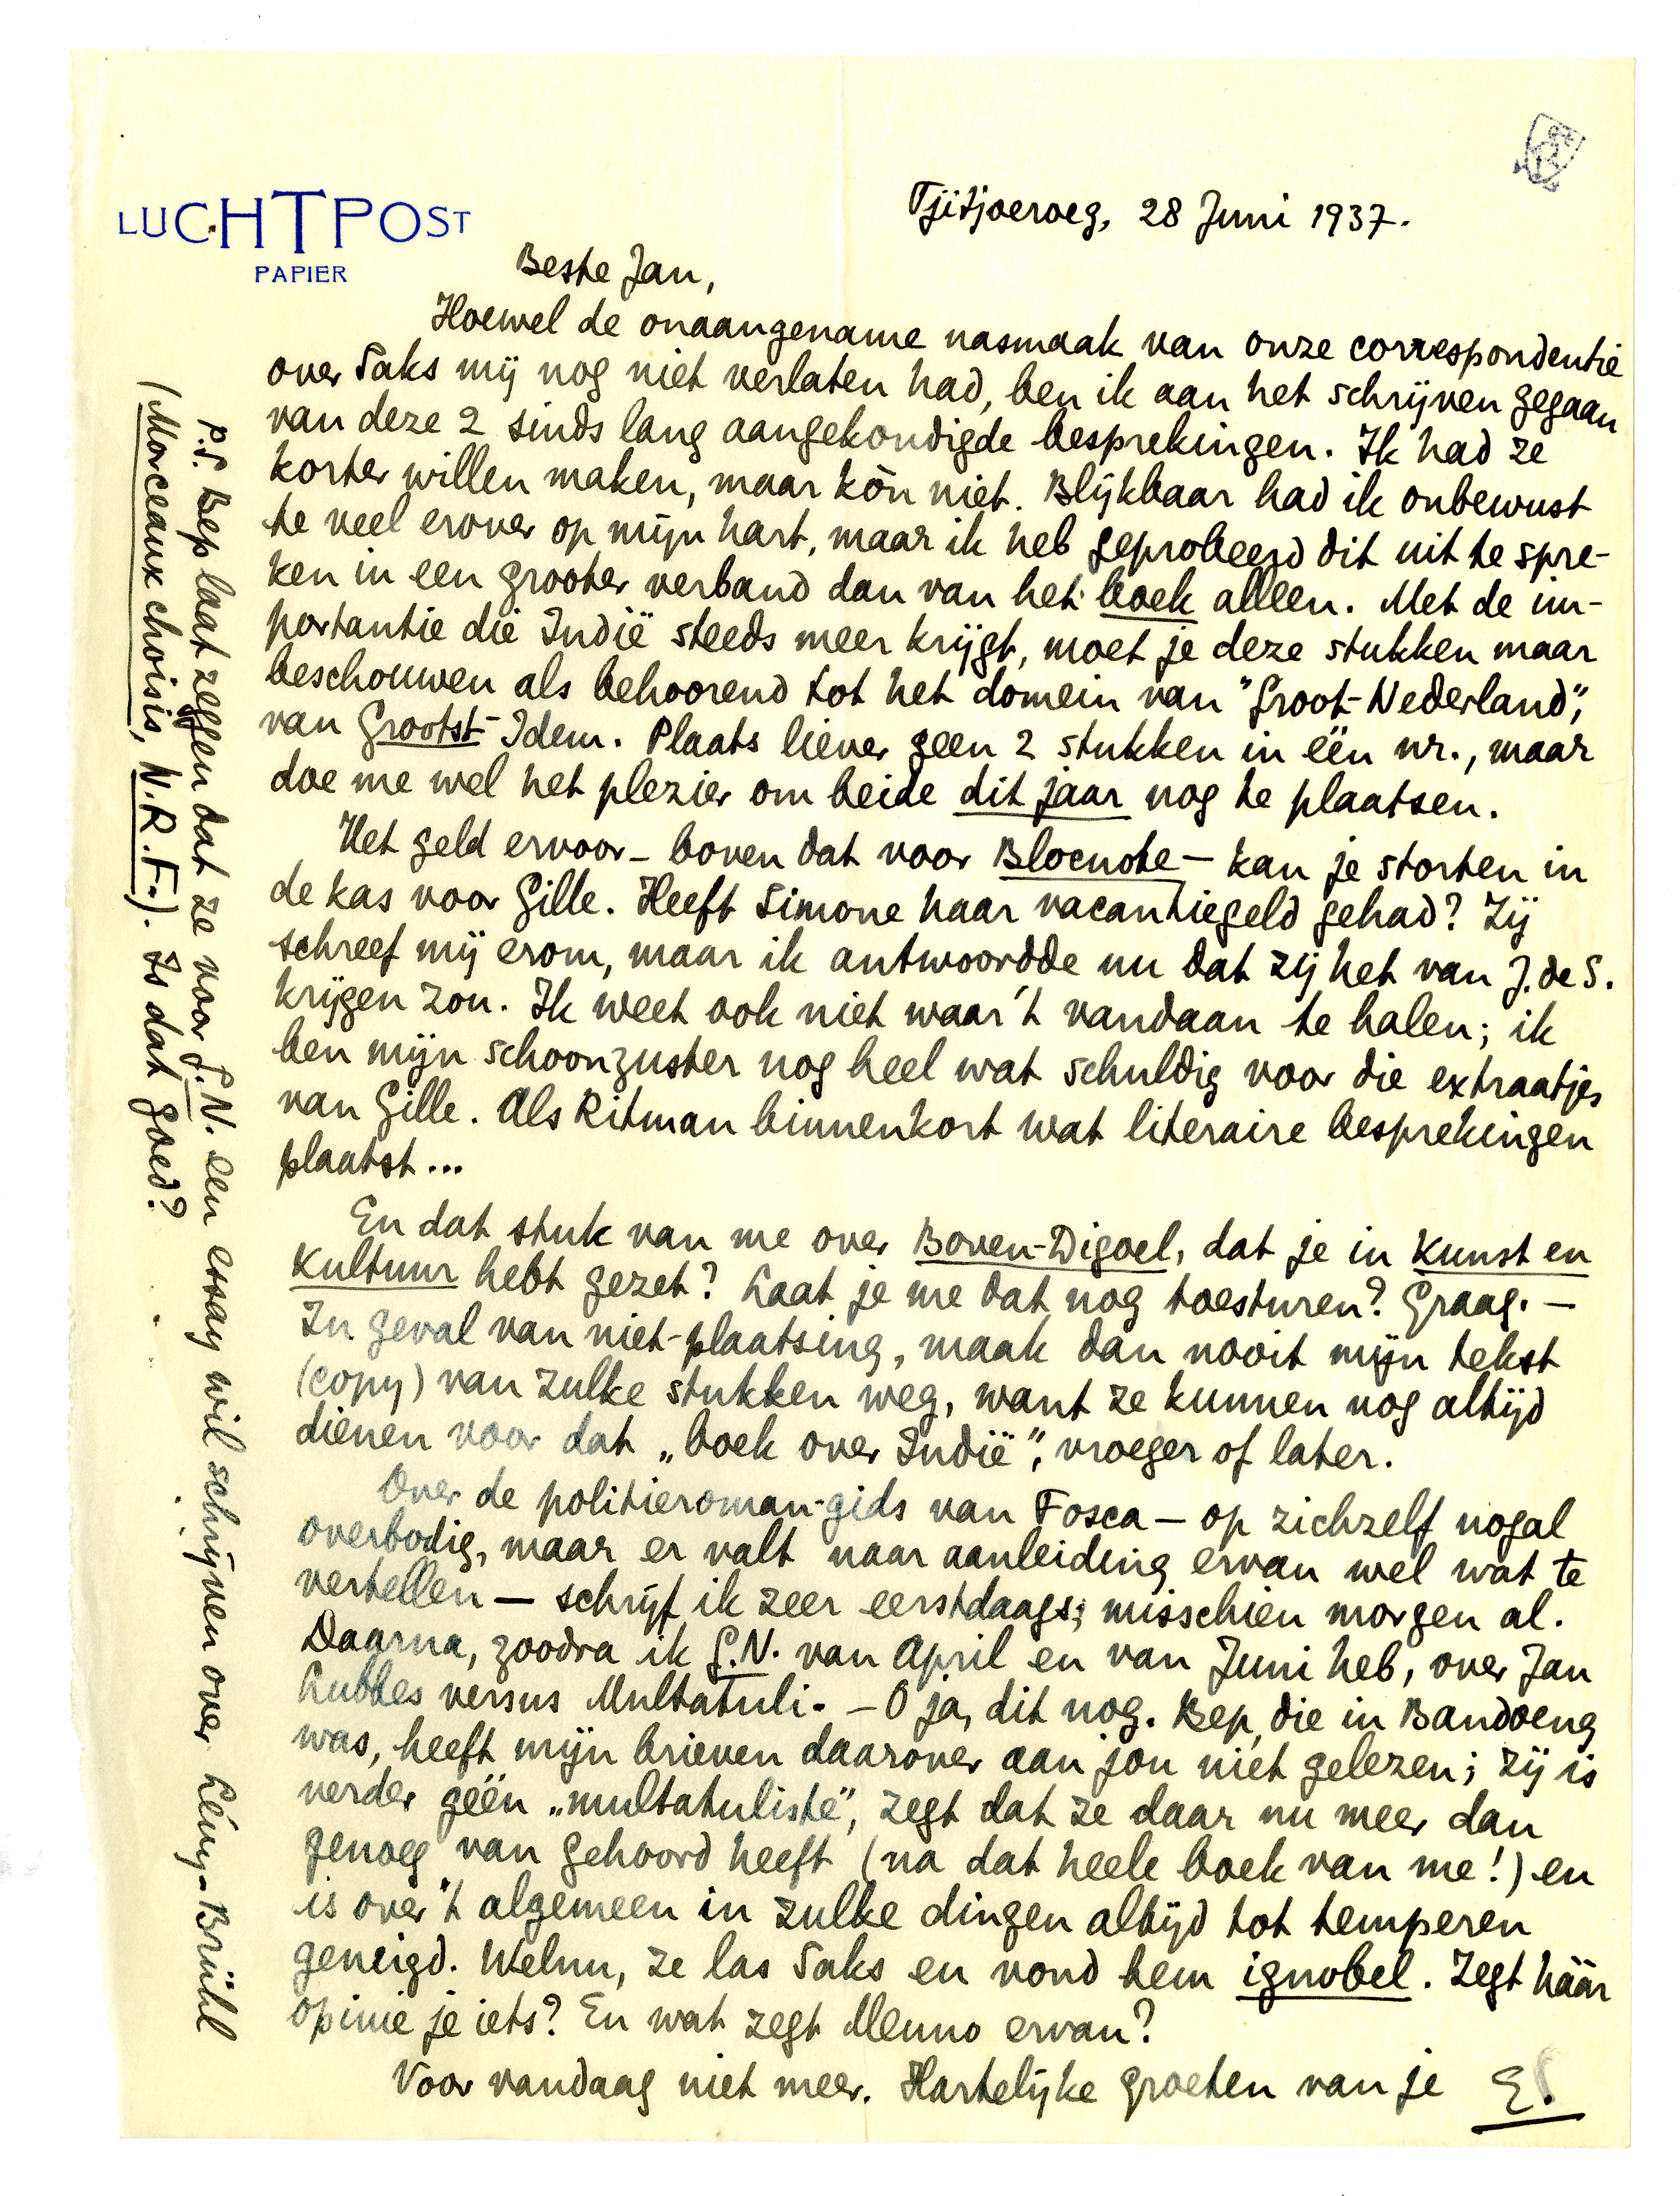 LUCHTPOST
PAPIER
Tjitjoeroeg, 28 Juni 1937.
Beste Jan,
Hoewel de onaangename nasmaak van onze correspondentie
over Saks mij nog niet verlaten had, ben ik aan het schrijven gegaan
van deze 2 sinds lang aangekondigde besprekingen. Ik had ze
korter willen maken, maar kòn niet. Blijkbaar had ik onbewust
te veel erover op mijn hart, maar ik heb geprobeerd dit uit te spre-
ken in een grooter verband dan van het boek alleen. Met de im-
portantie die Indië steeds meer krijgt, moet je deze stukken maar
beschouwen als behoorend tot het domein van "Groot-Nederland",
van Grootst-Idem. Plaats liever geen 2 stukken in één nr., maar
doe me wel het plezier om beide dit jaar nog te plaatsen.
Het geld ervoor – boven dat voor Blocnote – kan je storten in
de kas voor Gille. Heeft Simone haar vacantiegeld gehad? Zij
schreef mij erom, maar ik antwoordde nu dat zij het van J. de S.
krijgen zou. Ik weet ook niet waar 't vandaan te halen; ik
ben mijn schoonzuster nog heel wat schuldig voor die extraatjes
van Gille. Als Ritman binnenkort wat literaire besprekingen
plaatst...
En dat stuk van me over Boven-Digoel, dat je in Kunst en
Kultuur hebt gezet? Laat je me dat nog toesturen? Graag. –
In geval van niet-plaatsing, maak dan nooit mijn tekst
(copy) van zulke stukken weg, want ze kunnen nog altijd
dienen voor dat „boek over Indië", vroeger of later.
Over de politieroman-gids van Fosca – op zichzelf nogal
overbodig, maar er valt naar aanleiding ervan wel wat te
vertellen – schrijf ik zeer eerstdaags; misschien morgen al.
Daarna, zoodra ik G.N. van April en van Juni heb, over Jan
Lubbes versus Multatuli. – O ja, dit nog. Bep, die in Bandoeng
was, heeft mijn brieven daarover aan jou niet gelezen; zij is
verder géén „multatuliste", zegt dat ze daar nu meer dan
genoeg van gehoord heeft (na dat heele boek van me!) en
is over 't algemeen in zulke dingen altijd tot temperen
geneigd. Welnu, ze las Saks en vond hem ignobel. Zegt háár
opinie je iets? En wat zegt Menno ervan?
Voor vandaag niet meer. Hartelijke groeten van je E.
P.S. Bep laat zeggen dat ze voor G.N. een essay wil schrijven over Lévy-Brühl
(Morceaux choisis, N.R.F.). Is dat goed?